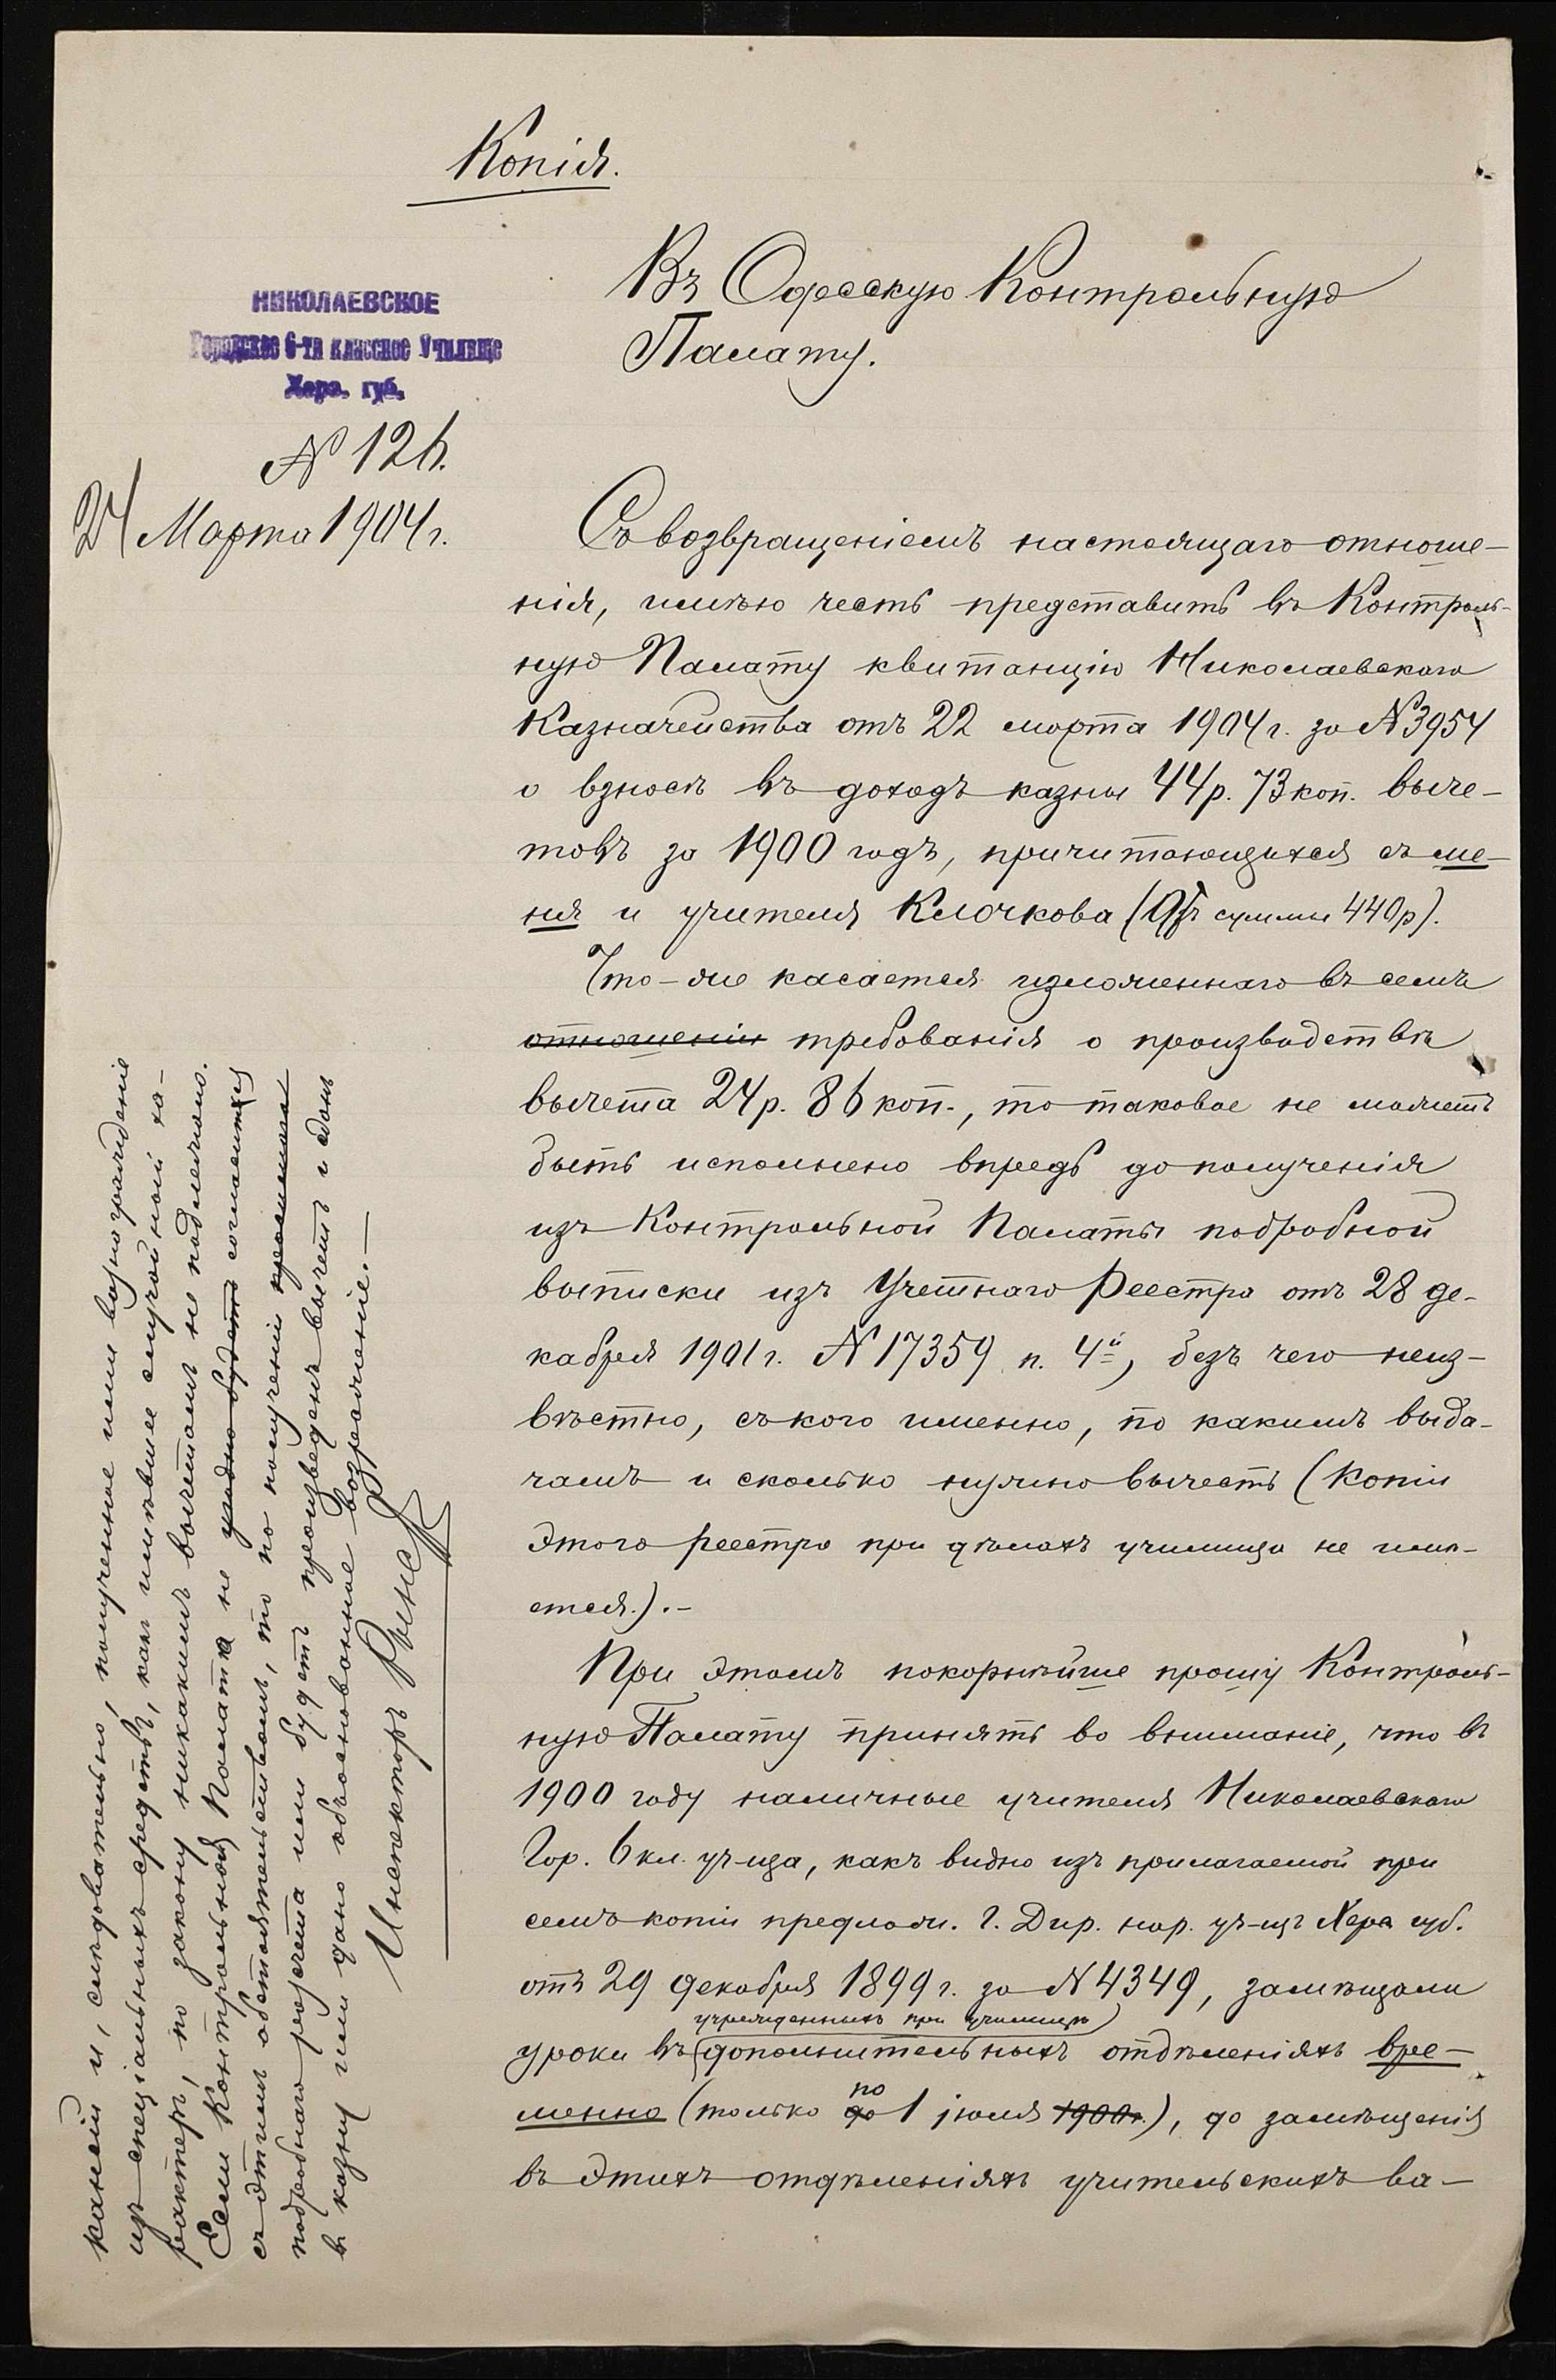 Копія.
НИКОЛАЕВСКОЕ
Городское 6-ти классное Училище
Херс. губ.
№ 126.
24 Марта 1904 г.
Въ Одесскую Контрольную
Палату.
Съ возвращеніемъ настоящаго отноше-
нія, имѣю честь представить въ Контроль-
ную Палату квитанцію Николаевскаго
Казначейства отъ 22 марта 1904 г. за №3954
о взносѣ въ доходъ казны 44 р. 73 коп. выче-
товъ за 1900 годъ, причитающихся съ ме-
ня и учителя Клочкова (Изъ суммы 440 р).
Что-же касается изложеннаго въ семъ
отношеніи требованія о производствѣ
вычета 24 р. 86 коп., то таковое не можетъ
быть исполнено впредь до полученія
изъ Контрольной Палаты подробной
выписки изъ Учетнаго Реестра отъ 28 де-
кабря 1901 г. № 17359 п. 4й, безъ чего неиз-
вѣстно, съ кого именно, по какимъ выда-
чамъ и сколько нужно вычесть (копіи
этого реестра при дѣлахъ училища не имѣ-
ется.).-
При этомъ покорнѣйше прошу Контроль-
ную Палату принять во вниманіе, что въ
1900 году наличные учителя Николаевскаго
Гор. 6 кл. уч-ща, какъ видно изъ прилагаемой при
семъ копіи предлож. Г. Дир. нар. уч-щъ Херс губ.
отъ 29 декабря 1899 г. за №4349, замѣщали
учрежденныхъ при училищѣ
уроки въ дополнительныхъ отдѣленіяхъ вре-
менно (только до по 1 іюля 1900 г.), до замѣщенія
въ этихъ отдѣленіяхъ учительскихъ ва-
кансій и, слѣдовательно, полученное ими вознагражденіе
изъ спеціальныхъ средствъ, какъ имѣвшее случайный ха-
рактеръ, по закону никакимъ вычетамъ не подлежало.
Если Контрольной Палатѣ не угодно будетъ согласиться
съ этимъ обстоятельствомъ, то по полученіи
подробнаго разсчета или будетъ произведенъ вычетъ и сданъ
въ казну или дано обоснованное возраженіе.—
Инспекторъ